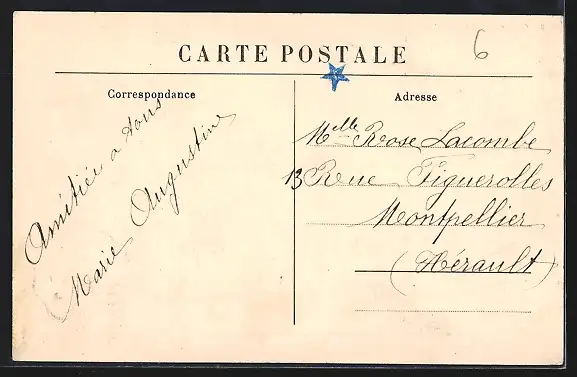 CARTE POSTALE
6
Correspondance
Adresse
Amitiés a tous
Marie Augustine
Melle Rose Lacombe
13 Rue Figuerolles
Montpellier
(Hérault)